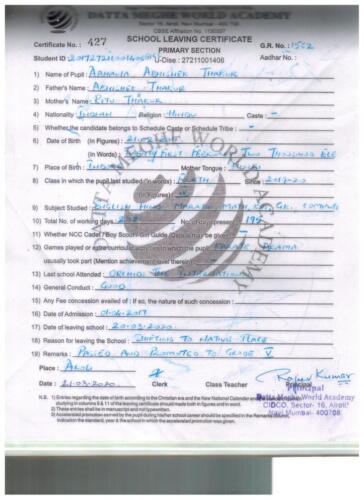 DATTA MEGHE WORLD ACADEMY
Sector 16, Airoli, Navi Mumbai - 400708
CBSE Affiliation No.
Certificate No.: 427 SCHOOL LEAVING CERTIFICATE G.R. No.: 1562
PRIMARY SECTION
Student ID: U-Dise : 27211001406 Aadhar No.:
1) Name of Pupil : Abhishek Thakur
2) Father's Name : Abhishek Thakur
3) Mother's Name : Ritu Thakur
4) Nationality : Indian Religion : Hindu Caste : -
5) Whether the candidate belongs to Schedule Caste or Schedule Tribe : -
6) Date of Birth (In Figures) :
(In Words) : Twenty First Two Thousand
7) Place of Birth : Mother Tongue : Hindi
8) Class in which the pupil last studied (In words) : Since : 2019-20
(In Figures) :
9) Subject Studied : English Hindi Marathi Math GK. Computer
10) Total No. of working days : No. of days present : 195
11) Whether NCC Cadet / Boy Scout / Girl Guide (Details may be given)
12) Games played or extra curricular activities in which the pupil Karate, Drama
usually took part (Mention achievement level there in) :
13) Last school Attended : Orchids The International
14) General Conduct : Good
15) Any Fee concession availed of : If so, the nature of such concession :
16) Date of Admission : 01-04-2019
17) Date of leaving school : 20-03-2020
18) Reason for leaving the School : Shifting to Native Place
19) Remarks : Passed and Promoted to Grade V
Place : Airoli
Date : 21-03-2020 Clerk Class Teacher Principal
Principal
Datta Meghe World Academy
CIDCO, Sector- 16, Airoli,
Navi Mumbai- 400708
N.B. 1) Entries regarding the date of birth according to the Christian era and the New National Calendar
studying in columns 6 & 11 of the leaving certificate should be made both in figures and in word.
2) These entries shall be in manuscript and not typewritten.
3) Accelerated promotion earned by the pupil during his/her school career should be specified in the Remarks column,
indication the standard, year & the school in which the accelerated promotion was given.